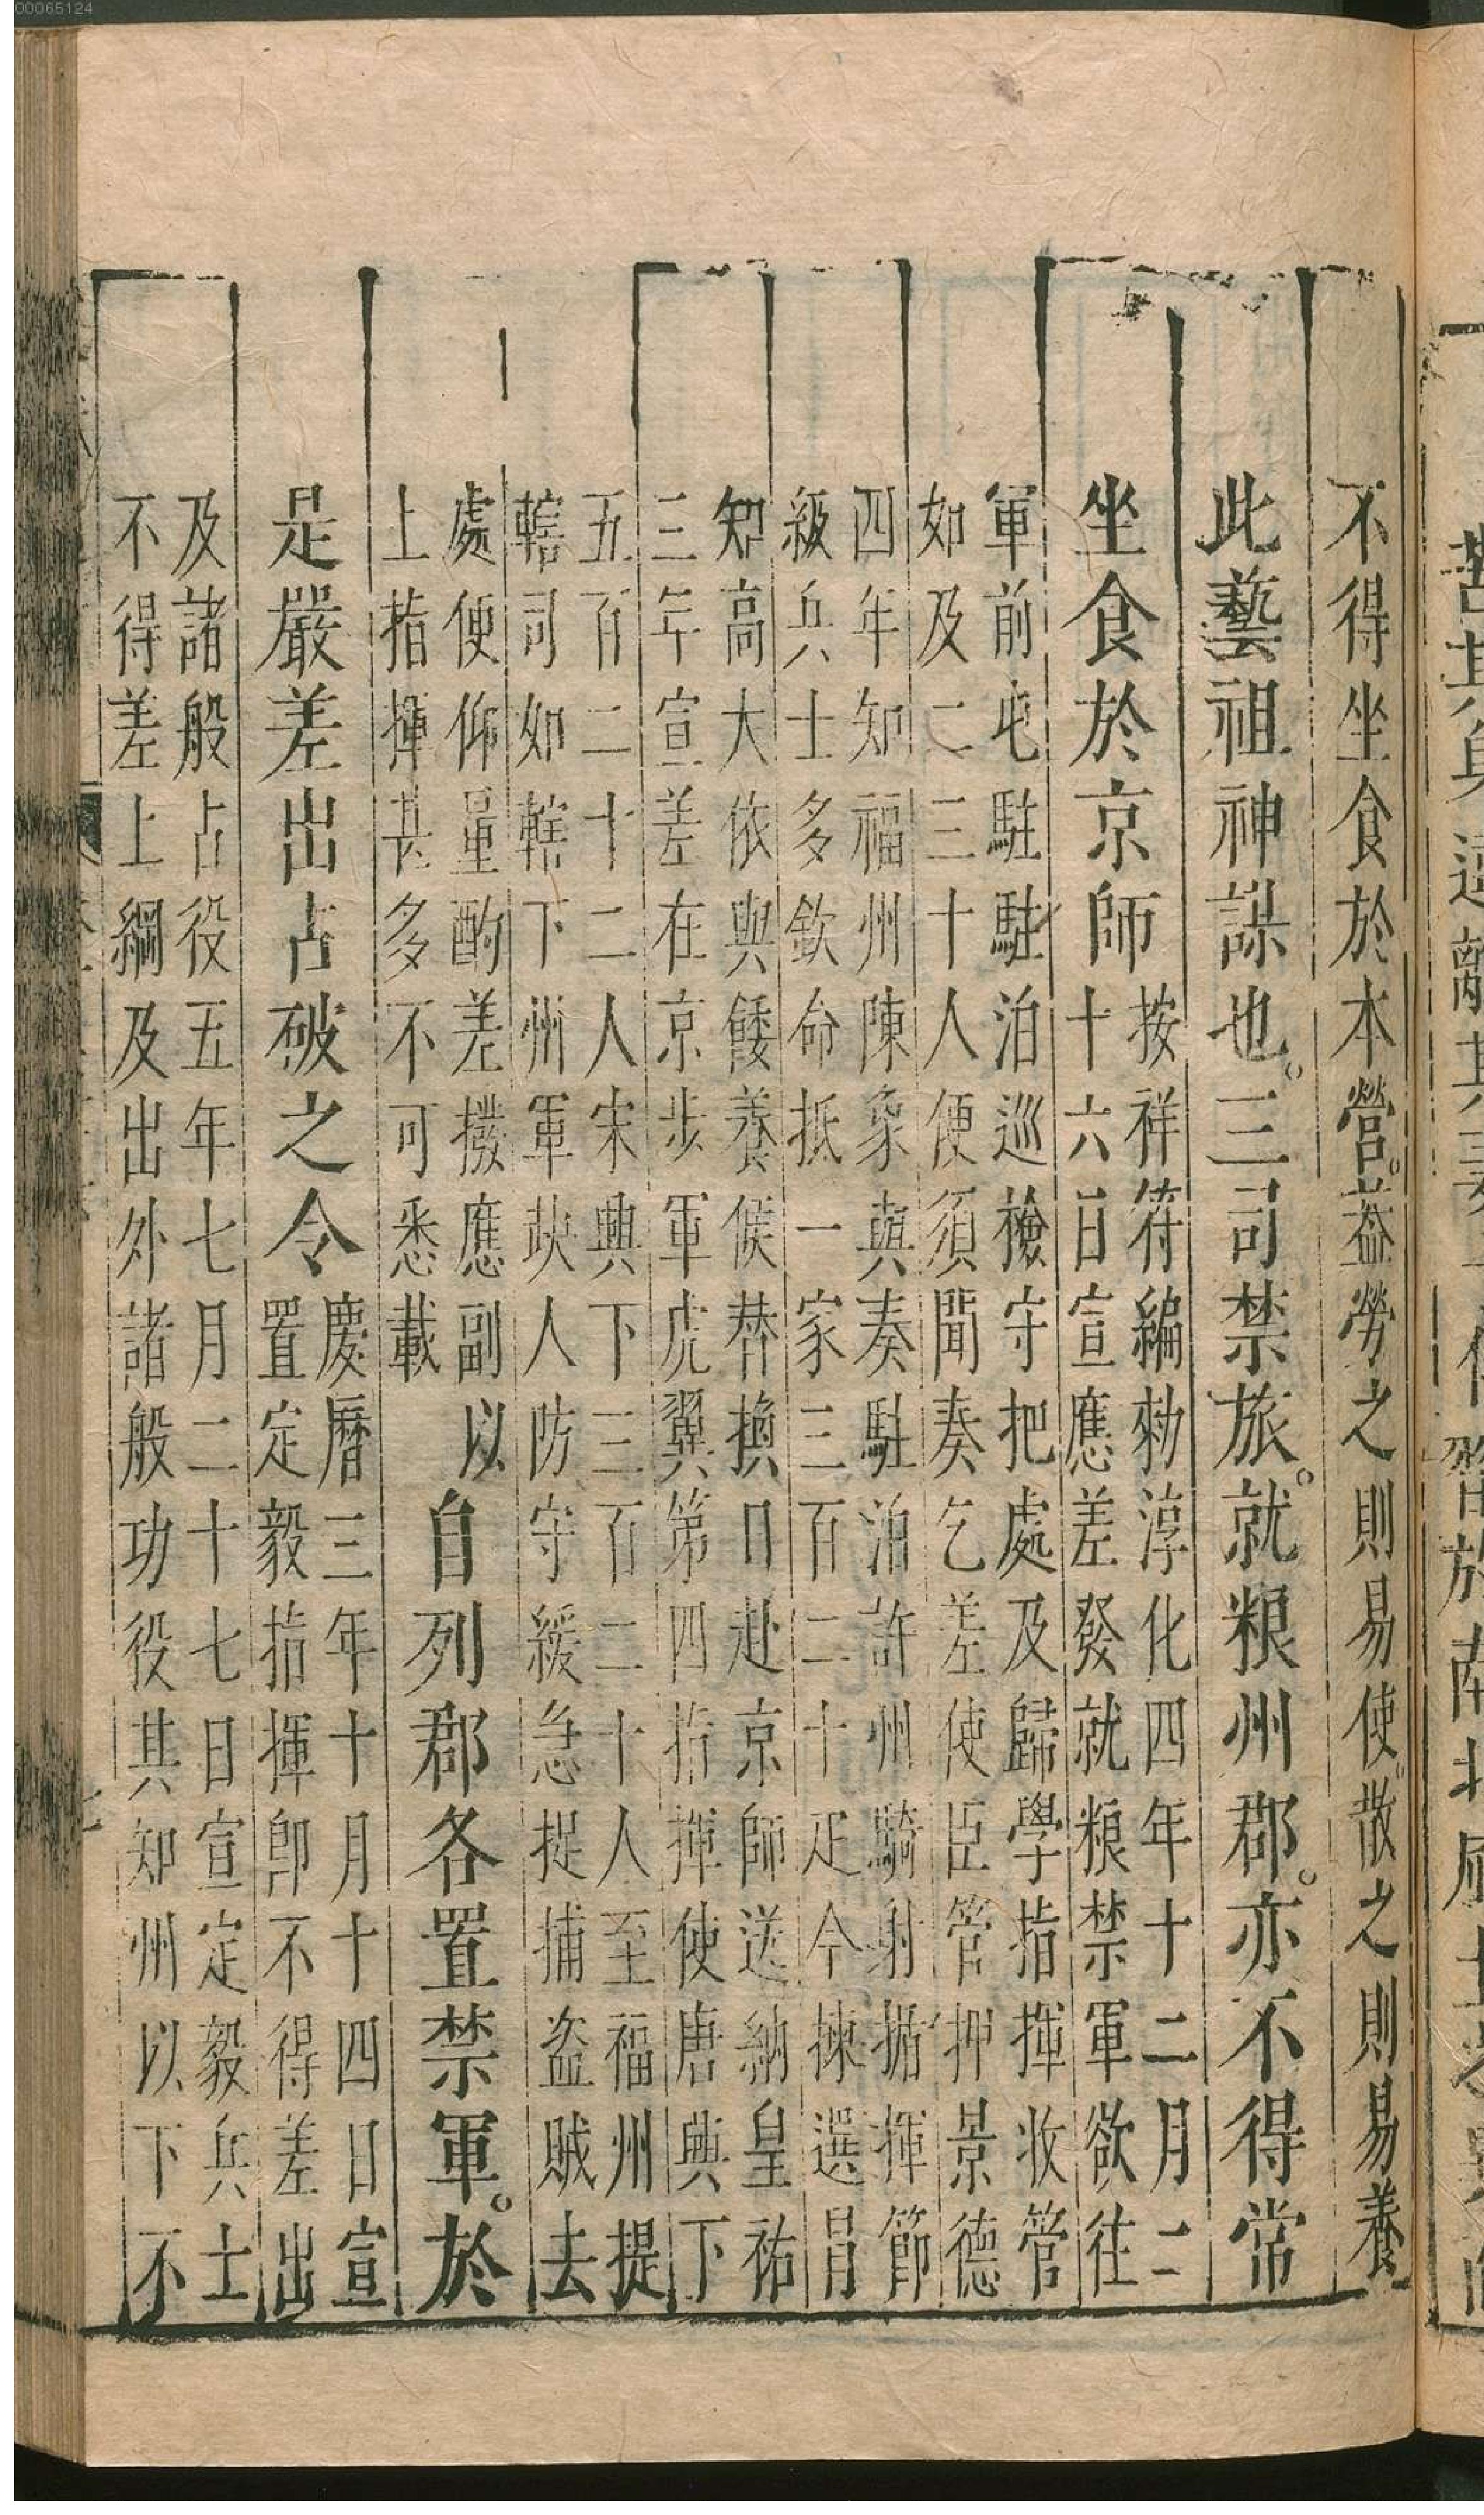 00065124
不得坐食於本營。葢勞之則易使。散之則易養
此藝祖神謀也。三司禁旅。就粮州郡。亦不得常
坐食於京師
按祥符編勑淳化四年十二月二
十六日宣應差發就粮禁軍欲往
軍前屯駐駐泊巡檢守把處及歸學指揮收管
如及二三十人便須聞奏乞差使臣管押景德
四年知福州陳象與奏駐泊許州騎射指揮節
級兵士多欽命抵一家三百二十疋今揀選冐
知高大依與餧養候替換日赴京師送納皇祐
三年宣差在京步軍虎翼第四指揮使唐興下
五百二十二人宋興下三百二十人至福州提
轄司如轄下州軍缺人防守緩急捉捕盗賊去
處便仰量酌差撥應副以
上指揮甚多不可悉載
自列郡各置禁軍。於
是嚴差出占破之令
慶曆三年十月十四日宣
置定毅指揮卽不得差出
及諸般占役五年七月二十七日宣定毅兵士
不得差上綱及出外諸般功役其知州以下不